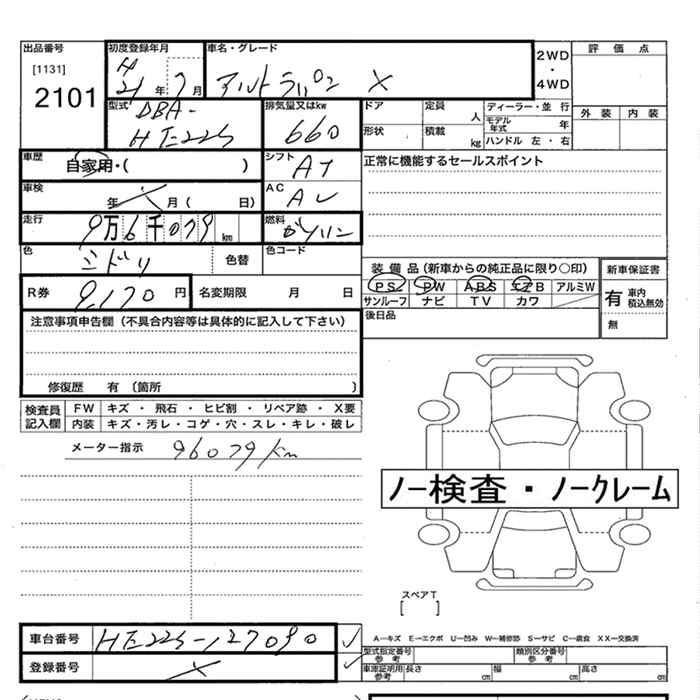 出品番号 初度登録年月 車名・グレード 2WD・4WD 評価点
[1131] H
2101 21年 7月 アルトラパン X
型式 DBA-HE22S 排気量又はkw 660 ドア 定員 人 ディーラー・並行 外装 内装
形状 積載 kg モデル年式 年
ハンドル 左・右
車歴 自家用・( ) シフト AT 正常に機能するセールスポイント
車検 年 月 ( 日) AC
走行 9万6千079km 燃料 ガソリン
色 ミドリ 色替 色コード
装備品(新車からの純正品に限り○印) 新車保証書
R券 9,170円 名変期限 月 日 PS PW ABS エアB アルミW 有 車内積込無効
サンルーフ ナビ TV カワ 無
注意事項申告欄(不具合内容等は具体的に記入して下さい) 後日品
修復歴 有 〔箇所 〕
検査員記入欄 FW キズ・飛石・ヒビ割・リペア跡・X要
内装 キズ・汚レ・コゲ・穴・スレ・キレ・破レ
メーター指示 96079km
ノー検査・ノークレーム
スペアT
[ ]
車台番号 HE22S-127090
A―キズ E―エクボ U―凹み W―補修跡 S―サビ C―腐食 XX―交換済
登録番号 型式指定番号参考 類別区分番号参考
車庫証明用参考 長さ cm 幅 cm 高さ cm